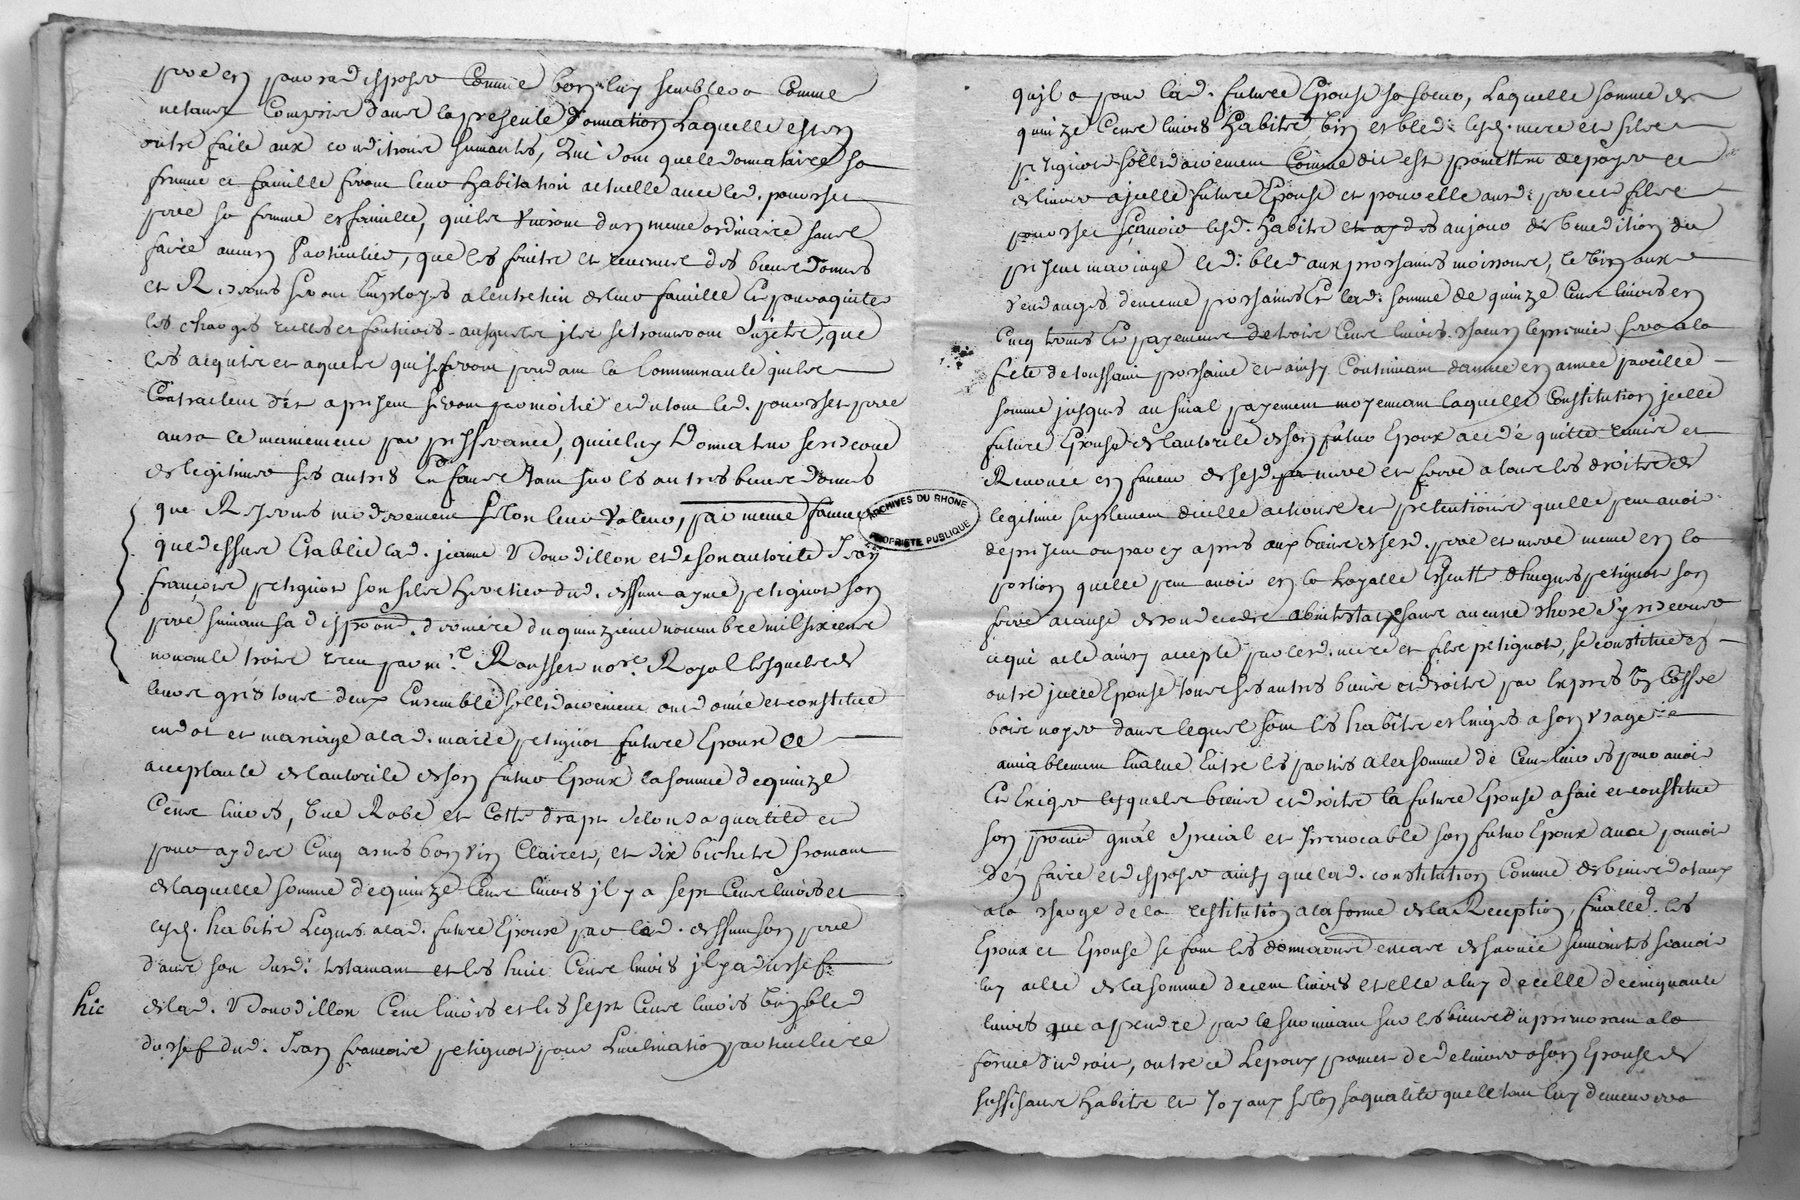 pere en pourra disposer Comme bon luy semblera Comme
netant Comprise dans la presente donnation Laquelle est en
outre faite aux conditions suivantes, que le donnataire sa
femme et famille feront leur habitation actuelle avec led. pourset
pere sa femme et famille, quils vivront dun meme ordinaire sans
faire aucun Particulier, que les fruits et revenus des biens donnes
et Reserves seront Employes a lentretien de leur famille Et pour aquiter
les charges reelles et foncieres ausqueles ils se trouveront sujets, que
les acquits et aquets qui se feront pendant la Communauté quils
Contractent des a present seront par moitié et du tout led. pourset pere
aura le maniement par, que luy Donnateur
de legitimer ses autres Enfans tant sur les autres biens donnes
que Reserves moderement selon leur valeur, par meme
que dessus Etablie lad. jeanne Vdourdillon et de son autorité Jean
françois petignot son fils heritier dud. deffunt ayme petignot son
pere suivant sa disposon. derniere du quinzieme novembre mil six cens
nonante trois receu par me. Rousset nore. Royal lesquels de
leurs grés tous deux Ensemble sollidairement ont donné et constitué
en dot et mariage a lad. marie petignot future Epouse
acceptante de lautorité de son futur Epoux la somme de quinze
Cens livres, Une Robe et Cotte drapt selon sa qualité et
pour ayder Cinq asnés bon vin Clairet, et dix bichets fromant
de laquelle somme de quinze Cens livres il y a sept Cens livres et
lesd. habits Legués a lad. future Epouse par led. deffunt son pere
dans son susd. testamant et les huit Cens livres il y a du chef
de lad. Vdourdillon Cent livres et les sept Cens livres vin bled
hic
du chef dud. Jean françois petignot pour Linclination particuliere
quil a pour lad. future Epouse sa soeur, Laquelle somme de
quinze Cens livres Habits vin et bled lesd. mere et fils
petignot sollidairement Comme dit est promettent de payer et
delivrer a jcelle future Epouse et pour elle ausd. pere et fils
pourset sçavoir lesd. habits au jour de benediction du
present mariage le d. bled aux prochaines moissons, le vin aux
vendanges prochaines Et lad. somme de quinze Cens livres en
Cinq termes Et payemens de trois Cens livres chacun le premier sera a la
fete de toussaint prochaine et ainsy Continuant dannée en année pareille
somme jusques au final payement moyennant laquelle Constitution jcelle
future Epouse de lautorité de son futur Epoux a cedé quitté remis et
Renoncé en faveur de sesd. mere et frere a tous les droits de
legitime suplement dicelle actions et pretentions quelle peut avoir
de present ou par cy apres aux biens de sesd. pere et mere meme en la
portion quelle peut avoir en la hoyrie de hugues petignot son
frere a cause de son decedé abintestat sans aucune chose sy reserver
ce qui a eté ainsy accepté par lesd. mere et fils petignot, se constitue en
outre jcelle Epouse tous ses autres biens et droits par Expres Un Coffre
bois noyer dans lequel sont les habits et linges a son usage
amiablement Evalué Entre les parties a la somme de Cent livres pour avoir
Et Exiger lesquels biens et droits la future Epouse a fait et constitué
son procur gnâl special et Irrevocable son futur Epoux avec pouvoir
den faire et disposer ainsy que lad. constitution Comme de biens dotaux
a la charge de la restitution a la forme de la Reception, finalled. les
Epoux et Epouse se font les donnations en cas de survie suivantes scavoir
luy a elle de la somme de cent livres et elle a luy de celle de cinquante
livres que a prendre par le survivant sur les biens du premourant a la
forme du droit, outre ce Lepoux promet de delivrer a son Epouse de
suffisans Habits et Joyaux selon sa qualité que le tout luy demeurera
ARCHIVES DU RHONE
PROPRIETE PUBLIQUE